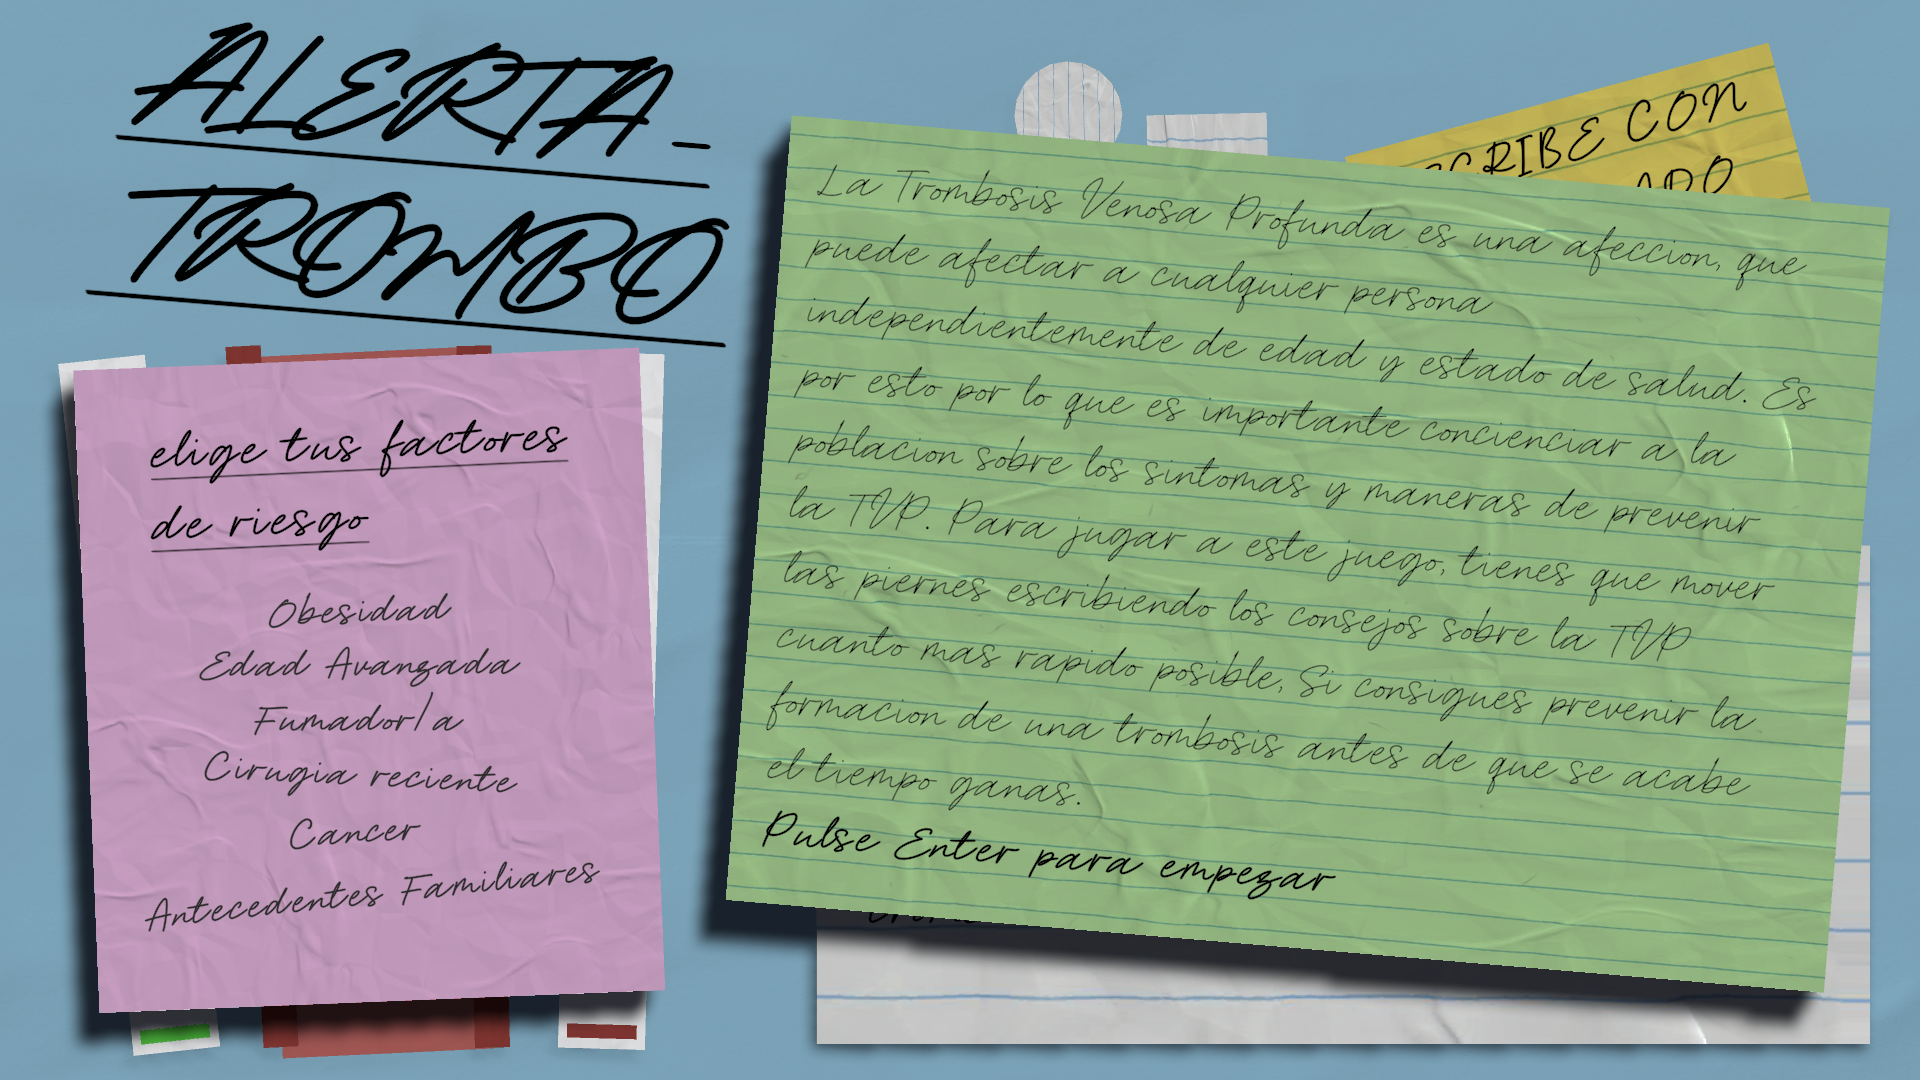 ALERTA-
TROMBO
elige tus factores
de riesgo
Obesidad
Edad Avanzada
Fumador/a
Cirugia reciente
Cancer
Antecedentes Familiares
CON
La Trombosis Venosa Profunda es una afeccion, que
puede afectar a cualquier persona
independientemente de edad y estado de salud. Es
por esto por lo que es importante concienciar a la
poblacion sobre los sintomas y maneras de prevenir
la TVP. Para jugar a este juego, tienes que mover
las piernes escribiendo los consejos sobre la TVP
cuanto mas rapido posible, Si consigues prevenir la
formacion de una trombosis antes de que se acabe
el tiempo ganas.
Pulse Enter para empezar